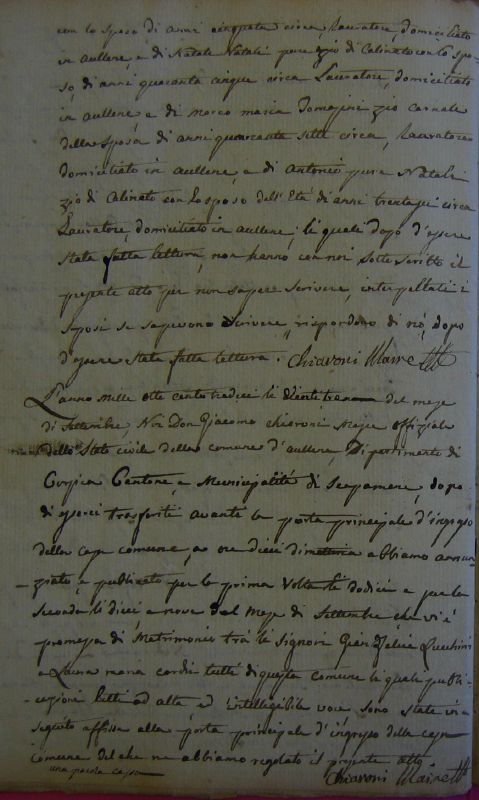 con lo sposo di anni cinquata circa, Lauratore, domiciliato
in aullene, e di Natale Natali pure zio di Calinato con lo spo-
so, di anni quaranta cinque circa Lauratore, domiciliato
in aullene, e di Marco maria Tomasini zio Carnale
della sposa di anni quaranta sette circa, Lauratore
domiciliato in aullene, e di Antonio pure Natali
zio di Calinato con Lo sposo dell'Età di anni trentasei circa
Lauratore, domiciliato in aullene, li quali dopo d'essere
stata fatta lettura, non hanno con noi sotto scritto il
presente atto per non sapere scrivere, interpellati i
sposi se sapevono scrivere, rispondono di nò, dopo
d'essere stata fatta lettura. Chiaroni Maire
L'anno mille otto cento tredici li venti tre del mese
di Settembre, Noi Don Giacomo chiaroni Maire offiziale
dello Stato civile della comune d'aullene, Dipartimento di
Corsica Cantone, e Municipalité di Scopamene, dopo
di esserci trasferiti avanti la porta principale d'ingresso
della casa comune, a ore dieci di mattina abbiamo annun-
ziato, e publicato per la prima volta li dodici e per la
seconda li dieci e nove del Mese di Settembre che vi è
promessa di Matrimonio trà li Signori Gian Felice Lucchini
e Laura maria tutti di questa comune le quale publi-
cazioni letti ad alta, ed intelligibile voce sono state in
seguito affisse alla porta principale d'ingresso della casa
Comune del che ne abbiamo regolato il presente atto
una parola cassa Chiaroni Maire